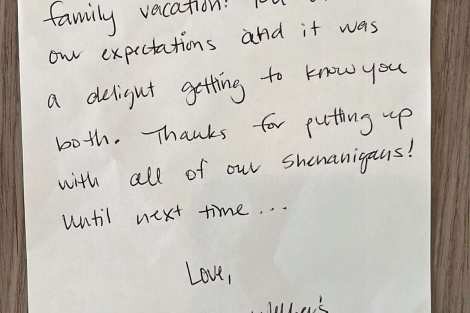 family vacation!
our expectations and it was
a delight getting to know you
both. Thanks for putting up
with all of our shenanigans!
Until next time...
Love,